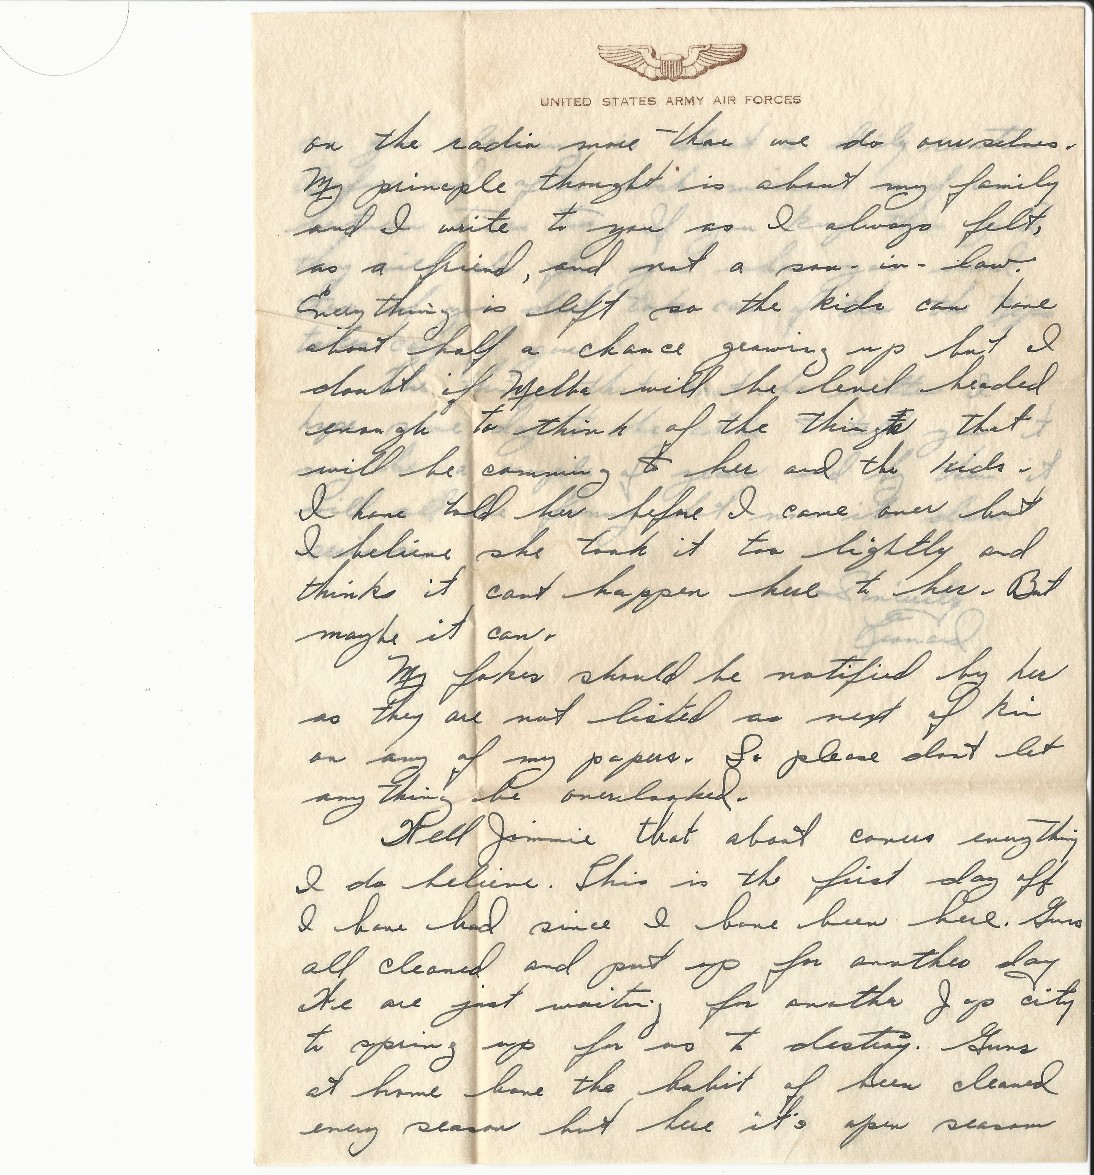 UNITED STATES ARMY AIR FORCES
on the radio more than we do ourselves.
My principle thought is about my family
and I write to you as I always felt,
as a friend, and not a son-in-law.
Everything is left so the kids can have
about half a chance growing up but I
doubt if Melba will be level headed
enough to think of the things that
will be comming to her and the kids.
I have told her before I came over but
I believe she took it too lightly and
thinks it cant happen here to her. But
maybe it can.
My fokes should be notified by her
as they are not listed as next of kin
on any of my papers. So please dont let
any thing be overlooked.
Well Jimmie that about covers everything
I do believe. This is the first day off
I have had since I have been here. Guns
all cleaned and put up for another day
We are just waiting for another Jap city
to spring up for us to destroy. Guns
at home have the habit of been cleaned
every season but here it's open season
Sincerely
Leonard